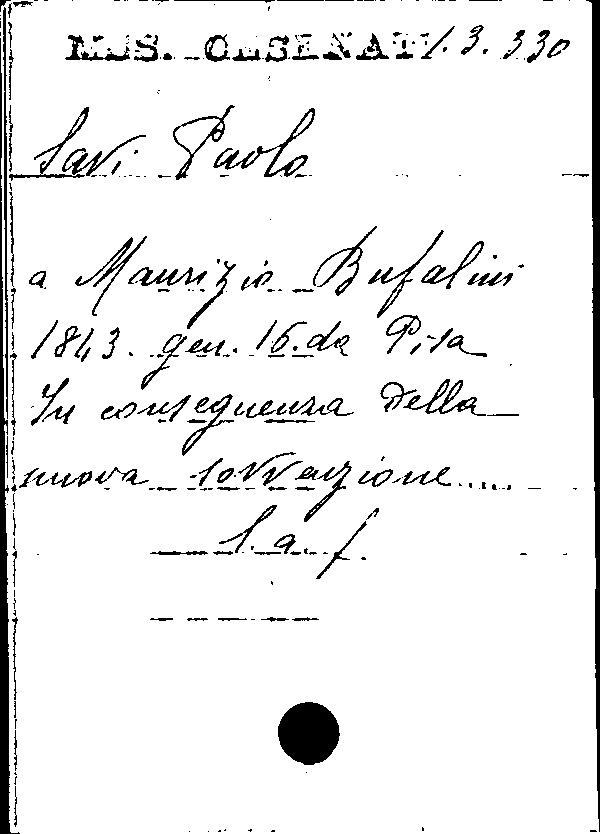 MSS. CESENATI. 3. 330
Savi Paolo
a Maurizio Bufalini
1843. gen. 16. da Pisa
In conseguenza della
nuova sovvenzione....
l. a. f.